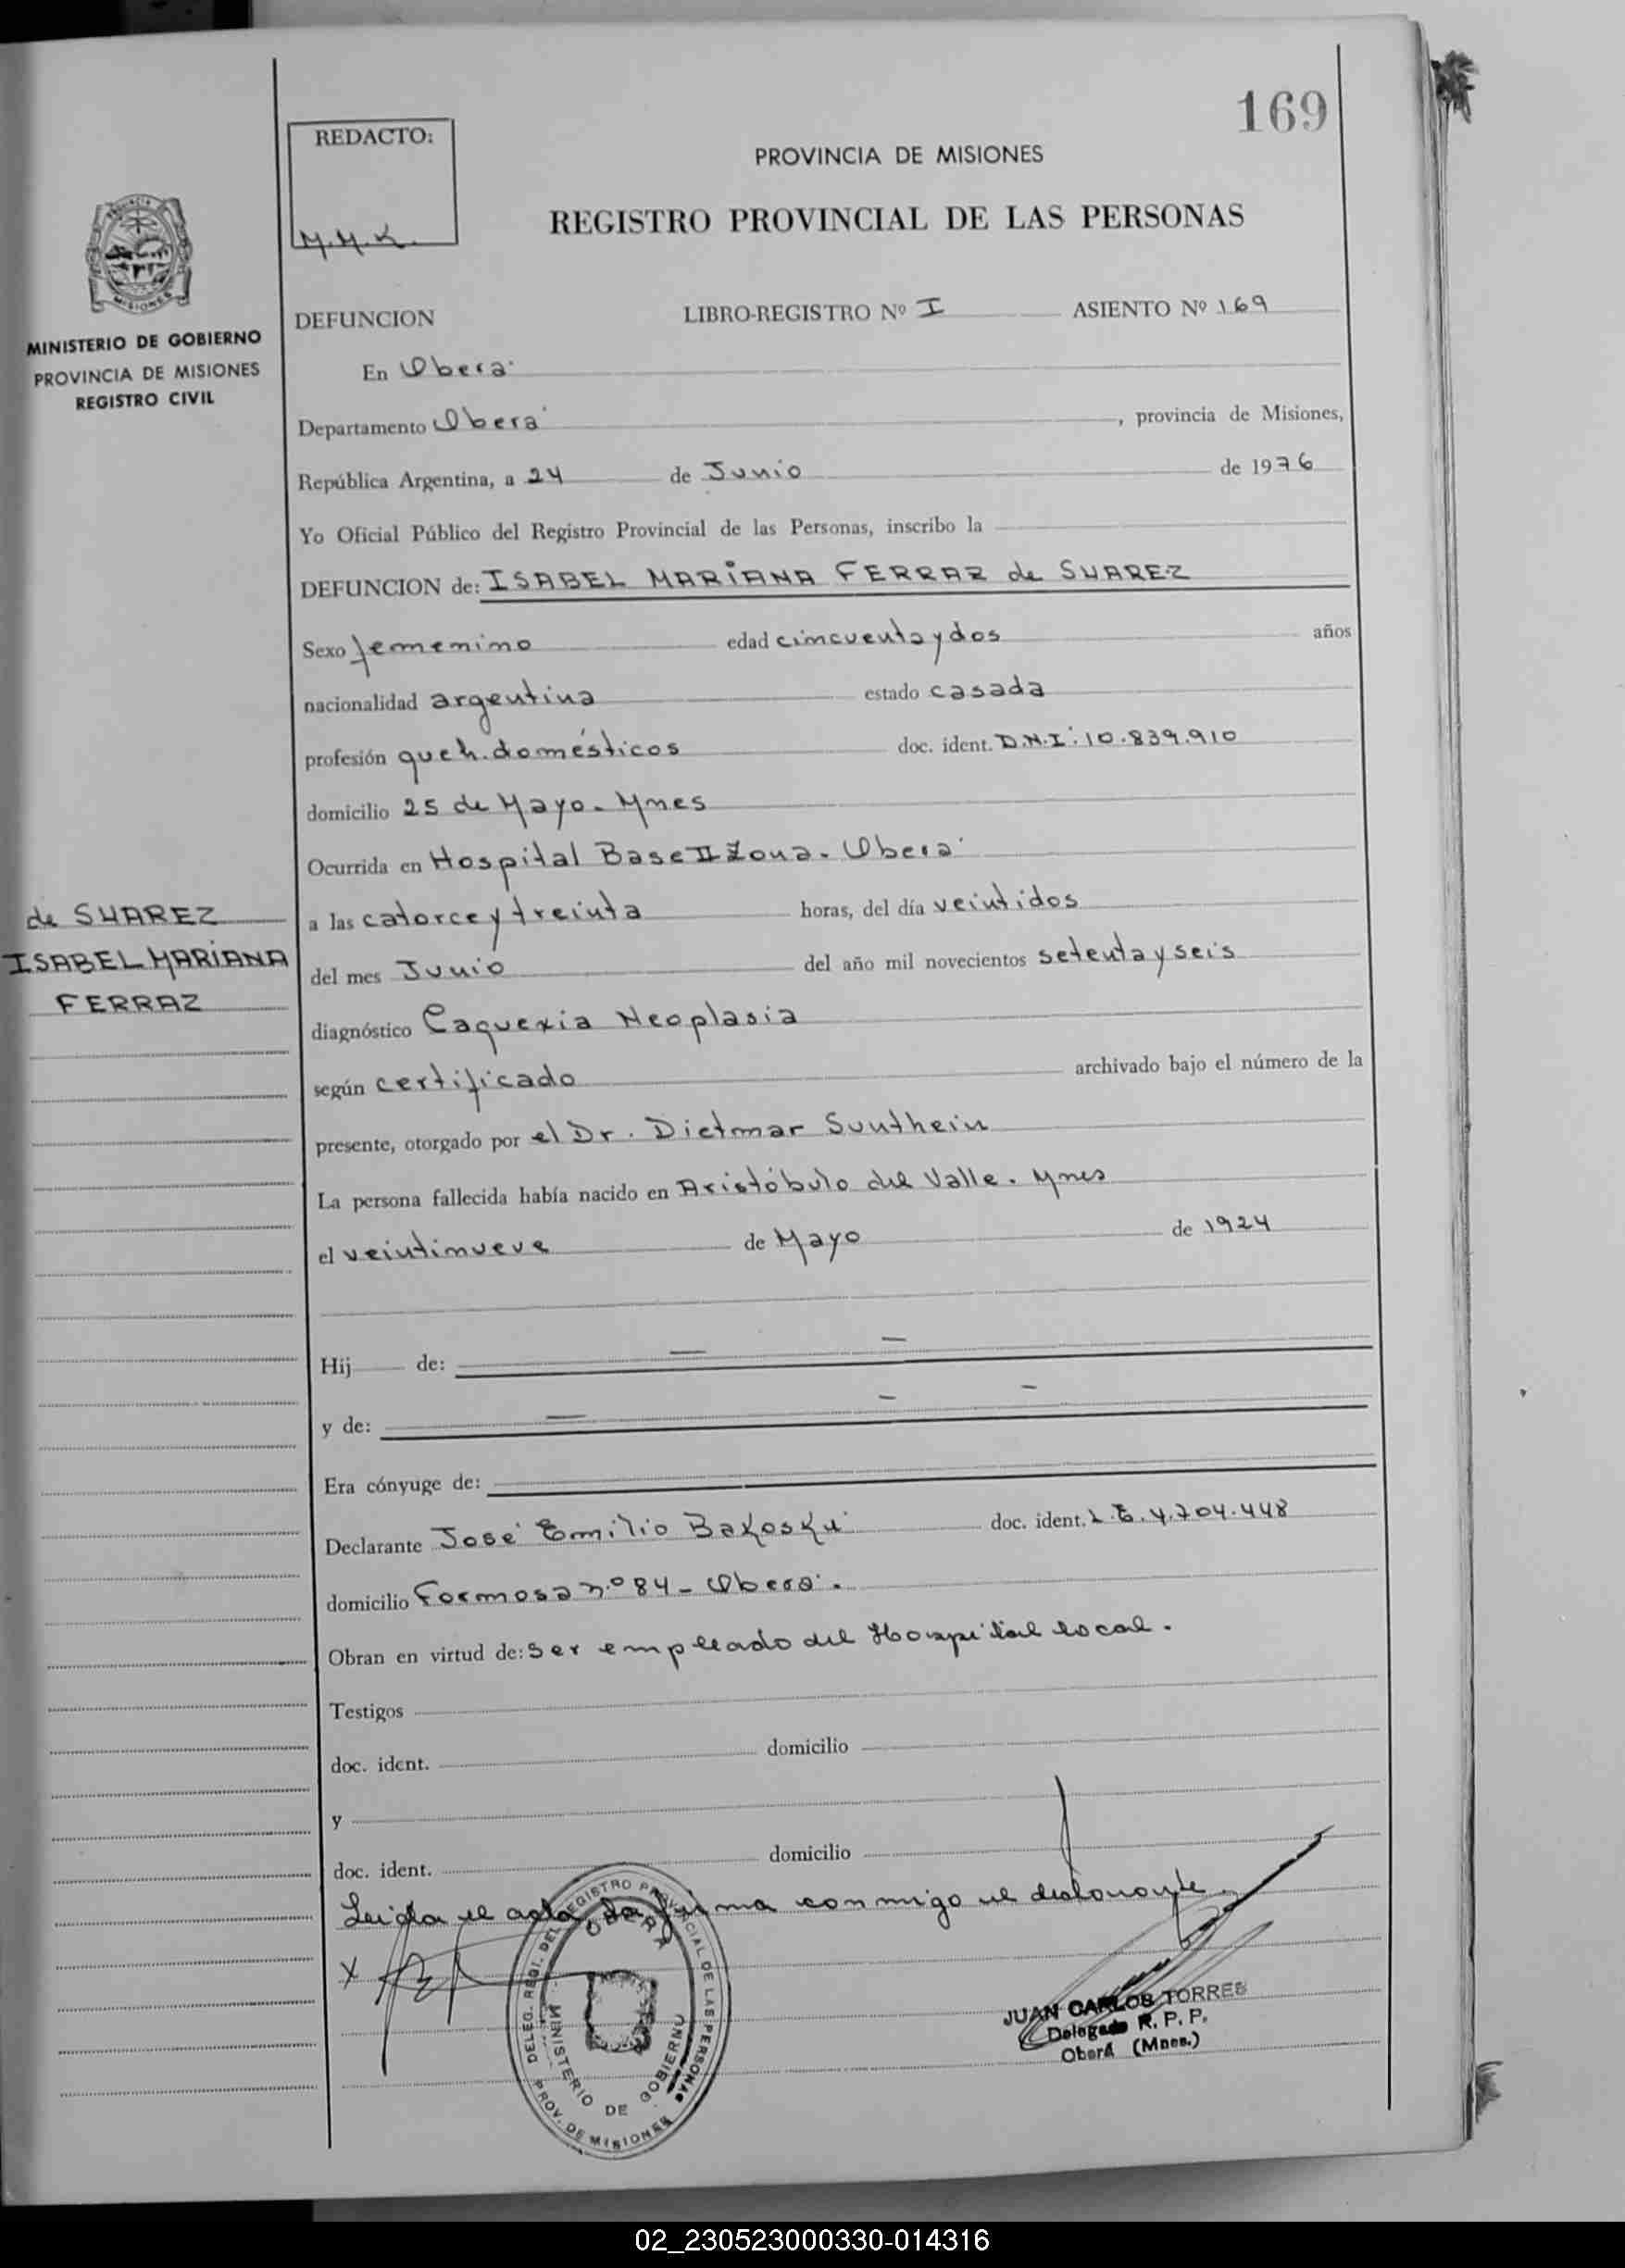 169
REDACTO:
M.M.K.
PROVINCIA DE MISIONES
REGISTRO PROVINCIAL DE LAS PERSONAS
MINISTERIO DE GOBIERNO
PROVINCIA DE MISIONES
REGISTRO CIVIL
DEFUNCION LIBRO-REGISTRO Nº I ASIENTO Nº 169
En Oberá
Departamento Oberá, provincia de Misiones,
República Argentina, a 24 de Junio de 1976
Yo Oficial Público del Registro Provincial de las Personas, inscribo la
DEFUNCION de: ISABEL MARIANA FERRAZ de SUAREZ
Sexo femenino edad cincuenta y dos años
nacionalidad argentina estado casada
profesión queh. domésticos doc. ident. D.N.I: 10.839.910
domicilio 25 de Mayo - Mnes
Ocurrida en Hospital Base II Zona - Oberá
a las catorce y treinta horas, del día veintidos
del mes Junio del año mil novecientos setenta y seis
de SUAREZ
ISABEL MARIANA
FERRAZ
diagnóstico Caquexia Neoplasia
según certificado archivado bajo el número de la
presente, otorgado por el Dr. Dietmar Sunthein
La persona fallecida había nacido en Aristóbulo del Valle. Mnes
el veintinueve de Mayo de 1924
Hij de:
y de:
Era cónyuge de:
Declarante José Emilio doc. ident. L.E. 4.704.448
domicilio Formosa n.º 84 - Oberá.
Obran en virtud de: ser empleado del Hospital local.
Testigos
doc. ident. domicilio
y
doc. ident. domicilio
Leida el acta, la firma conmigo el declarante.
X
DELEG. REGI. DEL REGISTRO PROVINCIAL DE LAS PERSONAS
OBERA
MINISTERIO DE GOBIERNO
PROV. DE MISIONES
JUAN CARLOS TORRES
Delegado R. P. P.
Oberá (Mnes.)
02_230523000330-014316